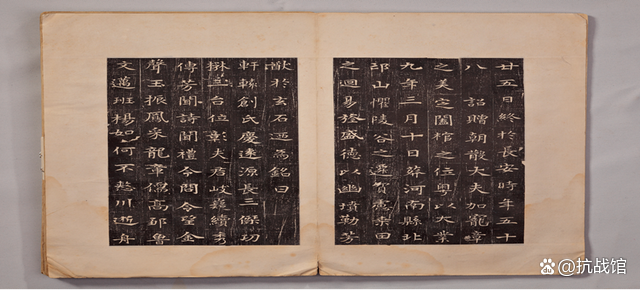 廿五日終於長安時年五十
八 詔贈朝散大夫加寵章
之美定闔棺之位粵以大業
九年三月十日葬河南縣北
邙山懼陵谷之遷貿慮桑田
之迴易 盛德以幽墳勒芬
猷於玄石迺爲銘曰
軒轅創氏慶遠源長三傑功
懋三台位彰夫君岐嶷纘秀
傳芳聞詩聞禮令問令望金
聲玉振鳳采龍章儒高鄒魯
文邁班楊如何不憖川逝舟
百度 @抗战馆